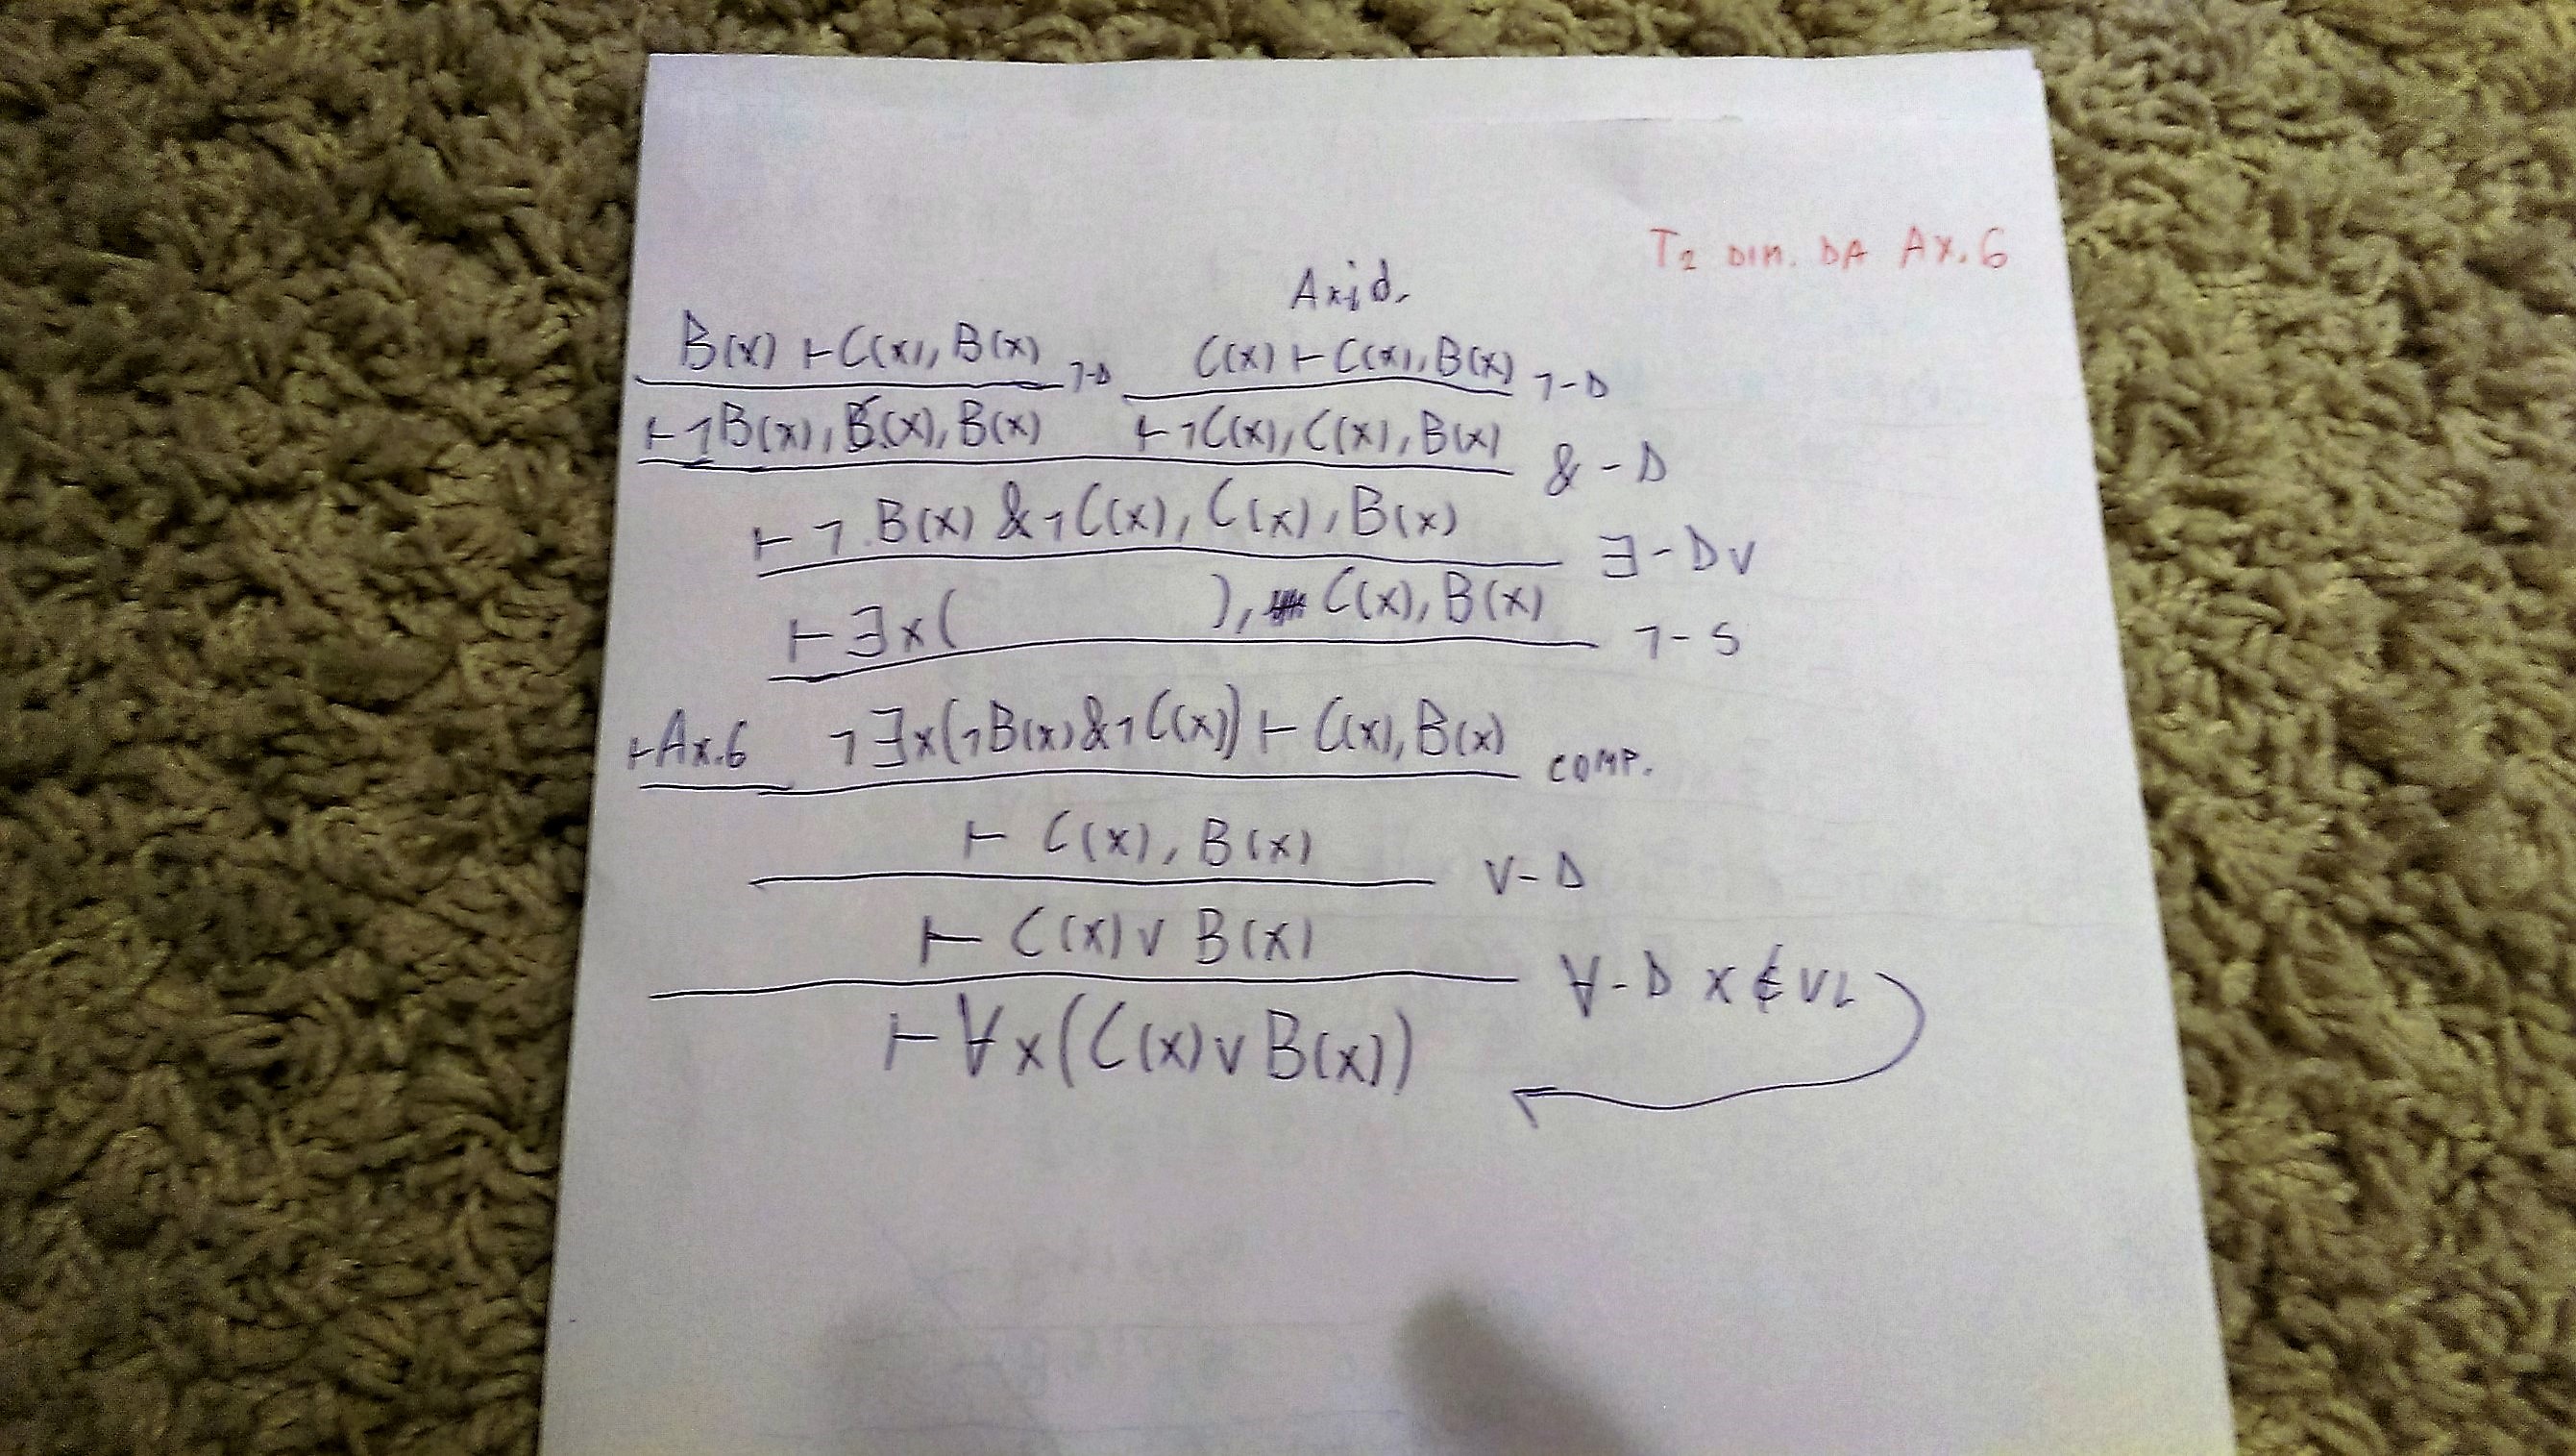 T2 DIM. DA AX.6
Axid.
B(x) ⊢ C(x), B(x) ¬-D C(x) ⊢ C(x), B(x) ¬-D
⊢ ¬B(x), B(x), B(x) ⊢ ¬C(x), C(x), B(x) &-D
⊢ ¬B(x) & ¬C(x), C(x), B(x) ∃-DV
⊢ ∃x( ), C(x), B(x) ¬-S
⊢Ax.6 ¬∃x(¬B(x) & ¬C(x)) ⊢ C(x), B(x) COMP.
⊢ C(x), B(x) V-D
⊢ C(x) ∨ B(x) ∀-D x ∉ VL
⊢ ∀x(C(x) ∨ B(x))